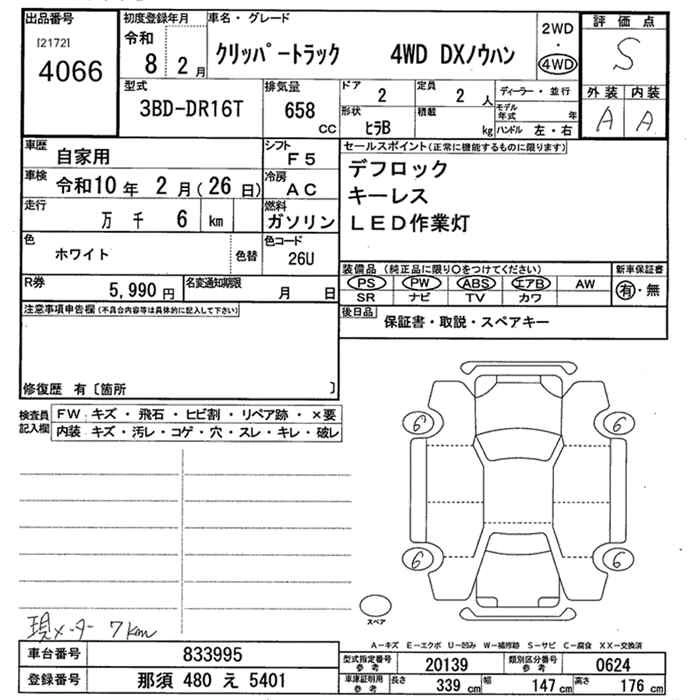 出品番号
[2172]
4066
初度登録年月
令和
8 2月
車名・グレード
クリッパートラック 4WD DXノウハン
2WD
・
4WD
評価点
S
外装 内装
A A
型式
3BD-DR16T
排気量
658 cc
ドア
2
定員
2 人
ディーラー・並行
形状
ヒラB
積載
kg
モデル年式 年
ハンドル 左・右
車歴
自家用
シフト
F5
車検
令和10年 2月(26日)
冷房
AC
走行
万 千 6 km
燃料
ガソリン
色
ホワイト
色替
色コード
26U
R券
5,990 円
名変通知期限
月 日
セールスポイント(正常に機能するものに限ります)
デフロック
キーレス
LED作業灯
装備品(純正品に限り○をつけてください)
PS PW ABS エアB AW
SR ナビ TV カワ
新車保証書
有・無
後日品
保証書・取説・スペアキー
注意事項申告欄(不具合内容等は具体的に記入して下さい)
修復歴 有〔箇所 〕
検査員記入欄
FW キズ・飛石・ヒビ割・リペア跡・×要
内装 キズ・汚レ・コゲ・穴・スレ・キレ・破レ
6 6
6 6
スペア
現メーター 7km
A−キズ E−エクボ U−凹み W−補修跡 S−サビ C−腐食 XX−交換済
車台番号 833995
登録番号 那須 480 え 5401
型式指定番号参考 20139 類別区分番号参考 0624
車庫証明用参考 長さ 339 cm 幅 147 cm 高さ 176 cm